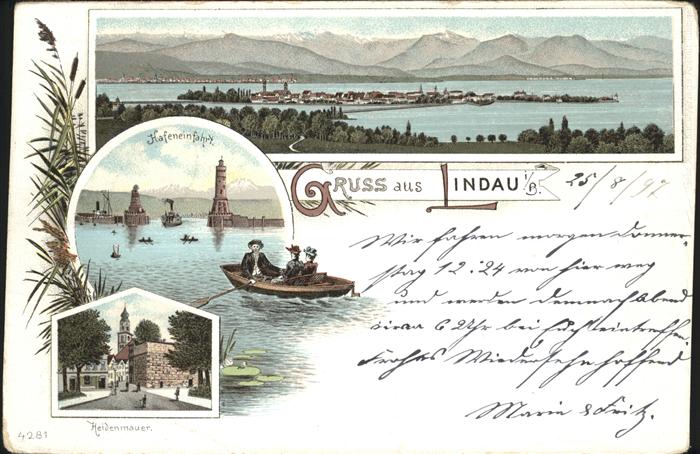 Hafeneinfahrt.
GRUSS AUS LINDAU i/B.
25/8/97
Wir fahren morgen Donner-
stag 12:24 von hier weg
und werden demnach Abend
circa 6 Uhr bei Euch eintreffen.
Frohes Wiedersehn hoffend
Marie & Fritz.
Heidenmauer.
4281